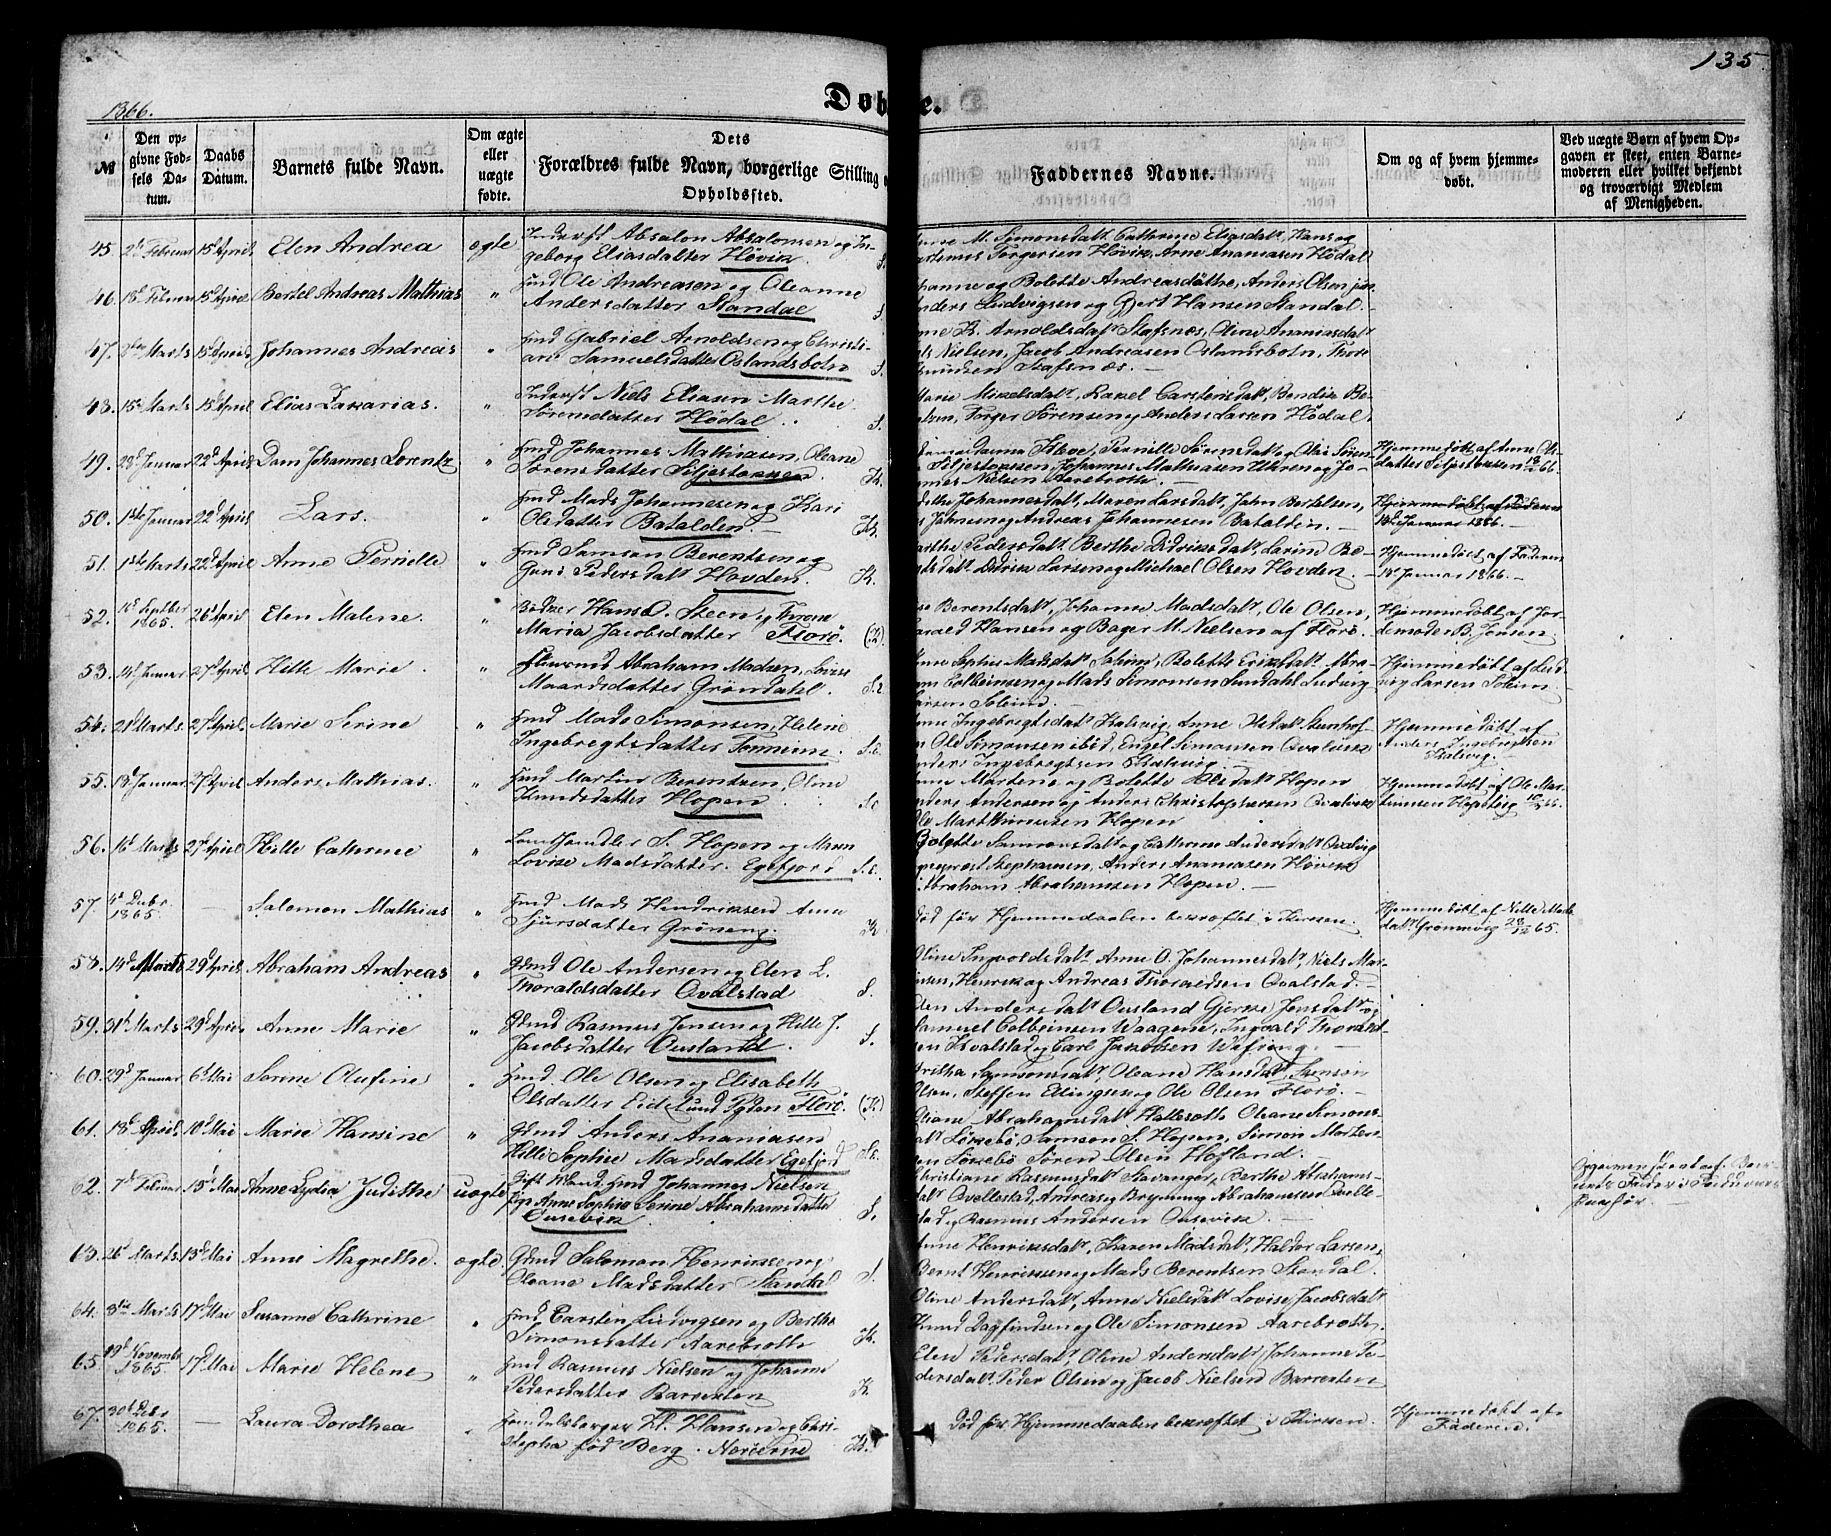 135
1866.
Døbte.
№
Den opgivne Fødsels Datum.
Daabs Datum.
Barnets fulde Navn.
Om ægte eller uægte fødte.
Dets Forældres fulde Navn, borgerlige Stilling og Opholdssted.
Faddernes Navne.
Om og af hvem hjemmedøbt.
Ved uægte Børn af hvem Opgaven er skeet, enten Barnemoderen eller hvilket bekjendt og troværdigt Medlem af Menigheden.
45. Februar 15d April Elen Andrea ægte Inderst Absalon Absalonsen og In-
geborg Eliasdatter Høvik. S.
M. Simonsdatr Cathrine Eliasdatr, Hans og
Torgersen Høvik, Arne Ananiasen Hødal
46. 18d Februar 15d April Bertel Andreas Mathias " Gmd Ole Andreasen og Oleanne
Andersdatter Standal S.
Johanne og Bolette Andreasdøttre, Anders Olsen
Ludvigsen og Gjert Hansen Standal.
47. Marts 15d April Johannes Andreas " Gmd Gabriel Arnoldsen og Christi-
ane Samuelsdatter Oslandsbotn S.
Arnoldsdatr Stafsnæs, Oline Ananiasdatr
Nielsen, Jacob Andreasen Oslandsbotn, Thore
Stafsnæs.
48. 15d Marts 15d April Elias Zakarias. " Inderst Niels Eliasen Marthe
Sørensdatter Hødal. S.
Marie Mikelsdatr, Rakel Carstensdatr, Bendix Be-
Torger Sørensen og Anders Larsen Hødal
49. 28d Januar 22d April Dam Johannes Lorentz " Gmd Johannes Mathiasen, Oleane
Sørensdatter Siljestøkken. K.
Pernille Sørensdatr og Ole Søren-
Siljestøkken, Johannes Mathiasen Uhren og Jo-
Nielsen Aarebrotte.
Hjemmedøbt af Anne Ols-
datter Siljestøkken
50. 1ste Januar 22d April Lars. " Gmd Mads Johannesen og Kari
Olsdatter Batalden. K.
Johannesdatr, Maren Larsdatr, Jahn Bertelsen,
Jahnsen og Andreas Johannesen Batalden.
Hjemmedøbt af Faderen
18d Januar 1866.
51. 1ste Marts 22d April Anne Pernille " Gmd Samson Berentsen og
Guni Pedersdatr Hovden. K.
Marthe Pedersdatr Berthe Didriksdatr Larine Be-
Didrik Larsen og Michael Olsen Hovden.
Hjemmedøbt af Faderen
18d Januar 1866.
52. 16d Septber 1865. 26d April Elen Malene. " Bødker Hans O. Steen og Throna
Maria Jacobsdatter Florø. (K)
Berentsdatr, Johanne Madsdatr, Ole Olsen,
Harald Hansen og Bager M. Nielsen af Florø.
Hjemmedøbt af Jor-
demoder B. Jensen
53. 14d Januar 27d April Hille Marie. " Abraham Madsen, Lovise
Maardsdatter Grøndahl. S.E.
Anne Sophie Madsdatr Solheim, Bolette Eriksdatr, Abra-
ham Colbeinsen og Mads Simonsen Sundahl Ludvig
Larsen Soleim.
Hjemmedøbt af Lud-
vig Larsen Soleim.
54. 21d Marts 27d April Marie Serine " Gmd Mads Simonsen, Helene
Ingebregtsdatter Tonnene. S.E.
Ingebregtsdatr Kalsvig, Anne
Ole Simonsen ibid, Engel Simonsen Qvalvik
Anders Ingebregtsen Kalsvig.
Hjemmedøbt af
Anders Ingebregtsen
Kalsvig.
55. 18d Januar 27d April Anders Mathias. " Gmd Martin Berentsen, Oline
Knudsdatter Hopen S.E.
Anne Martine og Bolette Olsdatr Hopen
Anders Andersen og Anders Christophersen Qvalvik
Ole Marthinusen Hopen
Hjemmedøbt af Ole Mar-
tinusen Hopen
56. 16d Marts 27d April Hille Cathrine " Landhandler S. Hopen og Maren
Lovise Madsdatter. Egefjord S.E.
Bolette Samsonsdatr og Cathrine Andersdatr Qvalvig
Stephansen, Anders Ananiasen Høvik
Abraham Abrahamsen Hopen.
57. 4d Decbr 1865. — Salomon Mathias " Gmd Mads Hendriksen Anne
Sjursdatter Grøneng. K.
Død før Hjemmedaaben bekræftet i Kirken.
Hjemmedøbt af Nille Mads-
datr Grønevig 28/12 65.
58. 14d Marts 29d April Abraham Andreas " Gmd Ole Andersen og Elen L.
Thoraldsdatter Qvalstad S.
Oline Ingvoldsdatr Anne O. Johannesdatr, Niels Mar-
Henrik og Andreas Thoraldsen Qvalstad.
59. 31d Marts 29d April Anne Marie " Gmd Rasmus Jensen og Hille J.
Jacobsdatter Ousland. S.
Andersdatr Ousland Gjørke Jonsdatr og
Samuel Colbeinsen Waagene, Ingvald Thorald-
sen Kvalstad og Carl Jakobsen
60. 29d Januar 6d Mai Serine Olufine " Gmd. Ole Olsen og Elisabeth
Olsdatter Eid Lund Pladsen Florø. (K)
Samsonsdatr, Oleane Hansdatr,
Olsen, Steffen Ellingsen og Ole Olsen Florø.
61. 18d April 10d Mai Marie Hansine " Gmd Anders Ananiasen
Hille Sophie Madsdatter Egefjord S.E.
Oliane Abrahamsdatr Hatleseth Oleane Simons-
datr Løkkebø, Samson S. Hopen, Simon Morten-
sen Løkkebø Søren Olsen Hofland.
62. 7d Februar 13d Mai Anne Lydia Judithe uægte Gift Mand. Gmd Johannes Nielsen
Pige Anne Sophia Serine Abrahamsdatter
Ousevik S.
Christiane Rasmusdatr Stavanger, Berthe Abrahams-
datr Qvellestad, Andreas og Brynning Abrahamsen Qvelle-
stad og Rasmus Andersen Ousevik.
Opgaven skeet af Bar-
nets Fader
63. 26d Marts 13d Mai Anne Magrethe. ægte Gmd Salomon Henriksen og
Oleane Madsdatter Standal S.
Anne Henriksdatr, Karen Madsdatr, Haldor Larsen,
Bernt Henriksen og Mads Berentsen Standal.
64. 8de Marts 17d Mai Susanne Cathrine " Gmd Carsten Ludvigsen og Berthe
Simonsdatter Aarebrotte K.
Oline Andersdatr, Anne Nielsdatr Lovise Jacobsdatr
Knud Dagfindsen og Ole Simonsen Aarebrotte.
65. 19d Novembr 1865. 17d Mai Marie Helene " Gmd Rasmus Nielsen og Johanne
Pedersdatter Barrexten K
Elen Pedersdatr, Oline Andersdatr Johanne Pe-
dersdatr Peder Olsen og Jacob Nielsen Barrexten
67. 30d Decbr 1865. — Laura Dorothea " Handelsborger H. Hansen og Chri-
stopha fød Berg. Norderne K.
Død før Hjemmedaaben bekræftet i Kirken.
Hjemmedøbt af
Faderen.